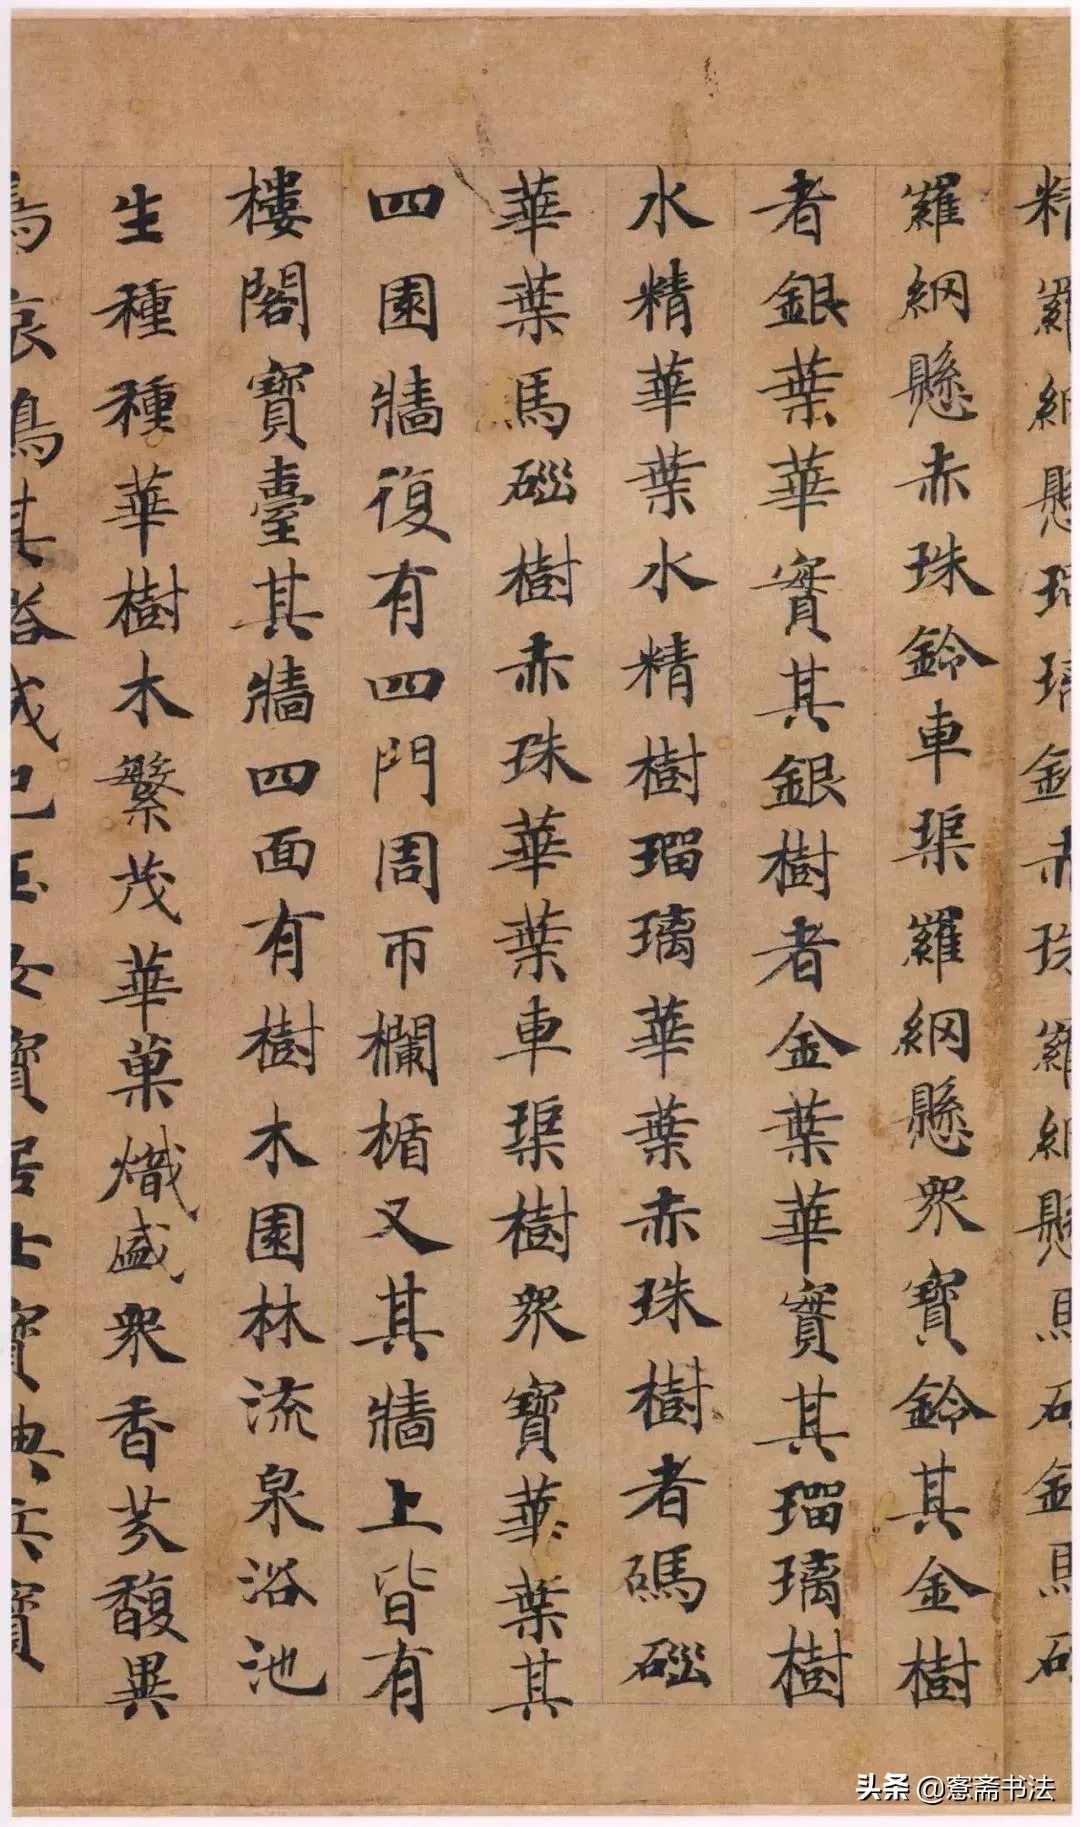 精羅網懸瑠璃鈴赤珠羅網懸馬碯鈴馬碯
羅網懸赤珠鈴車渠羅網懸衆寶鈴其金樹
者銀葉華實其銀樹者金葉華實其瑠璃樹
水精華葉水精樹瑠璃華葉赤珠樹者碼碯
華葉馬碯樹赤珠華葉車渠樹衆寶華葉其
四園牆復有四門周帀欄楯又其牆上皆有
樓閣寶臺其牆四面有樹木園林流泉浴池
生種種華樹木繁茂華菓熾盛衆香芬馥異
鳥哀鳴其塔成已玉女寶居士寶典兵寶
头条 @愙斋书法